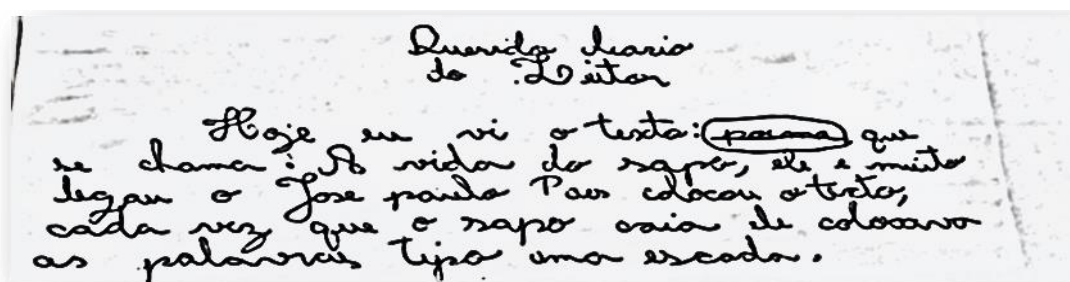 Querido diario
do Leitor
Hoje eu vi o texto: poema que
se chama: A vida do sapo, ele e muito
legau o Jose paulo Paes colocou o texto,
cada vez que o sapo caia ele colocava
as palavras tipo uma escada.